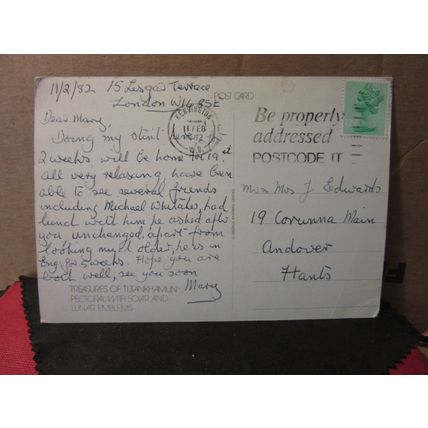 11/2/82 15 Lisgar Terrace
London W14 8SE
POST CARD
KENSINGTON
11 FEB
1982
W.8
Be properly
addressed
POSTCODE IT
Dear Mary,
Doing my stint here
2 weeks, will be home Fri 19th
all very relaxing, have been
able to see several friends
including Michael Whitaker, had
lunch with him he asked after
you, unchanged, apart from
looking much older, he is in
Eng. for 5 weeks. Hope you are
both well, see you soon
Mary
TREASURES OF TUTANKHAMUN-
PECTORAL WITH SOLAR AND
LUNAR EMBLEMS
Mrs J Edwards
19 Corunna Main
Andover
Hants